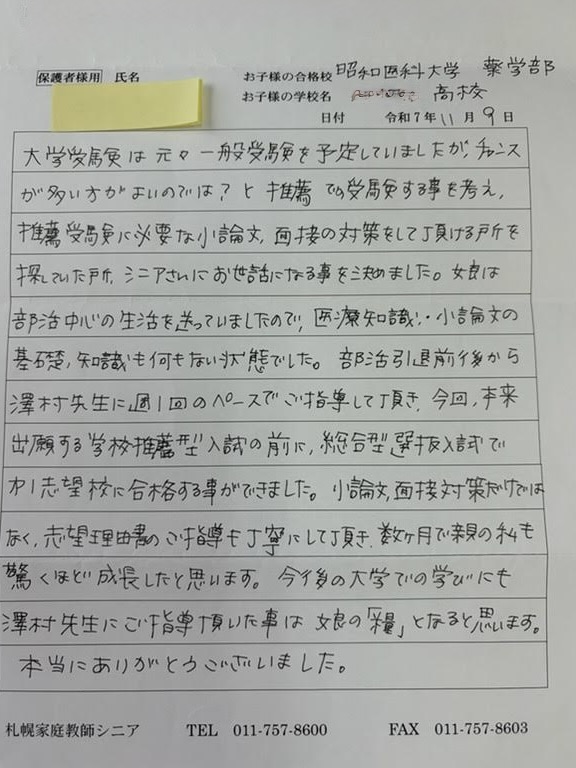 保護者様用 氏名 お子様の合格校 昭和医科大学 薬学部
お子様の学校名 高校
日付 令和7年11月9日
大学受験は元々一般受験を予定していましたが、チャンス
が多い方がよいのでは?と推薦での受験する事を考え、
推薦受験に必要な小論文、面接の対策をして頂ける所を
探していた所、シニアさんにお世話になる事を決めました。娘は
部活中心の生活を送っていましたので、医療知識・小論文の
基礎、知識も何もない状態でした。部活引退前後から
澤村先生に週1回のペースでご指導して頂き、今回、本来
出願する学校推薦型入試の前に、総合型選抜入試で
オ1志望校に合格する事ができました。小論文、面接対策だけでは
なく、志望理由書のご指導も丁寧にして頂き、数ヶ月で親の私も
驚くほど成長したと思います。今後の大学での学びにも
澤村先生にご指導頂いた事は娘の「糧」となると思います。
本当にありがとうございました。
札幌家庭教師シニア TEL 011-757-8600 FAX 011-757-8603